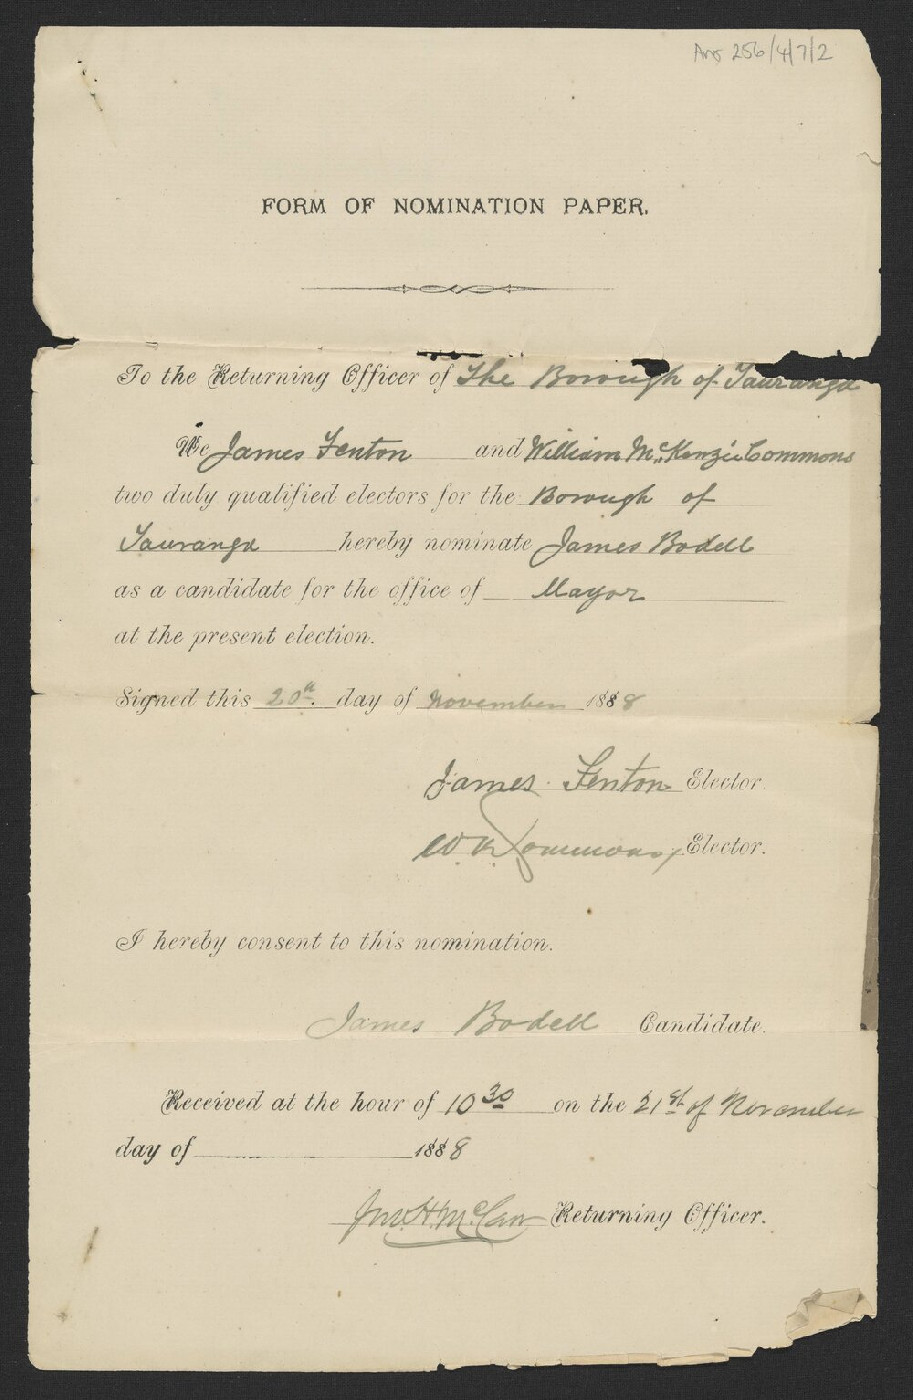 Ams 256/4/7/2
FORM OF NOMINATION PAPER.
To the Returning Officer of the Borough of Tauranga
We James Fenton and William McKenzie Commons
two duly qualified electors for the Borough of
Tauranga hereby nominate James Bodell
as a candidate for the office of Mayor
at the present election.
Signed this 20th day of November 1888
James Fenton Elector.
W. K. Commons, Elector.
I hereby consent to this nomination.
James Bodell Candidate.
Received at the hour of 10 30 on the 21st of November
day of 1888
Jno. H. McCaw Returning Officer.